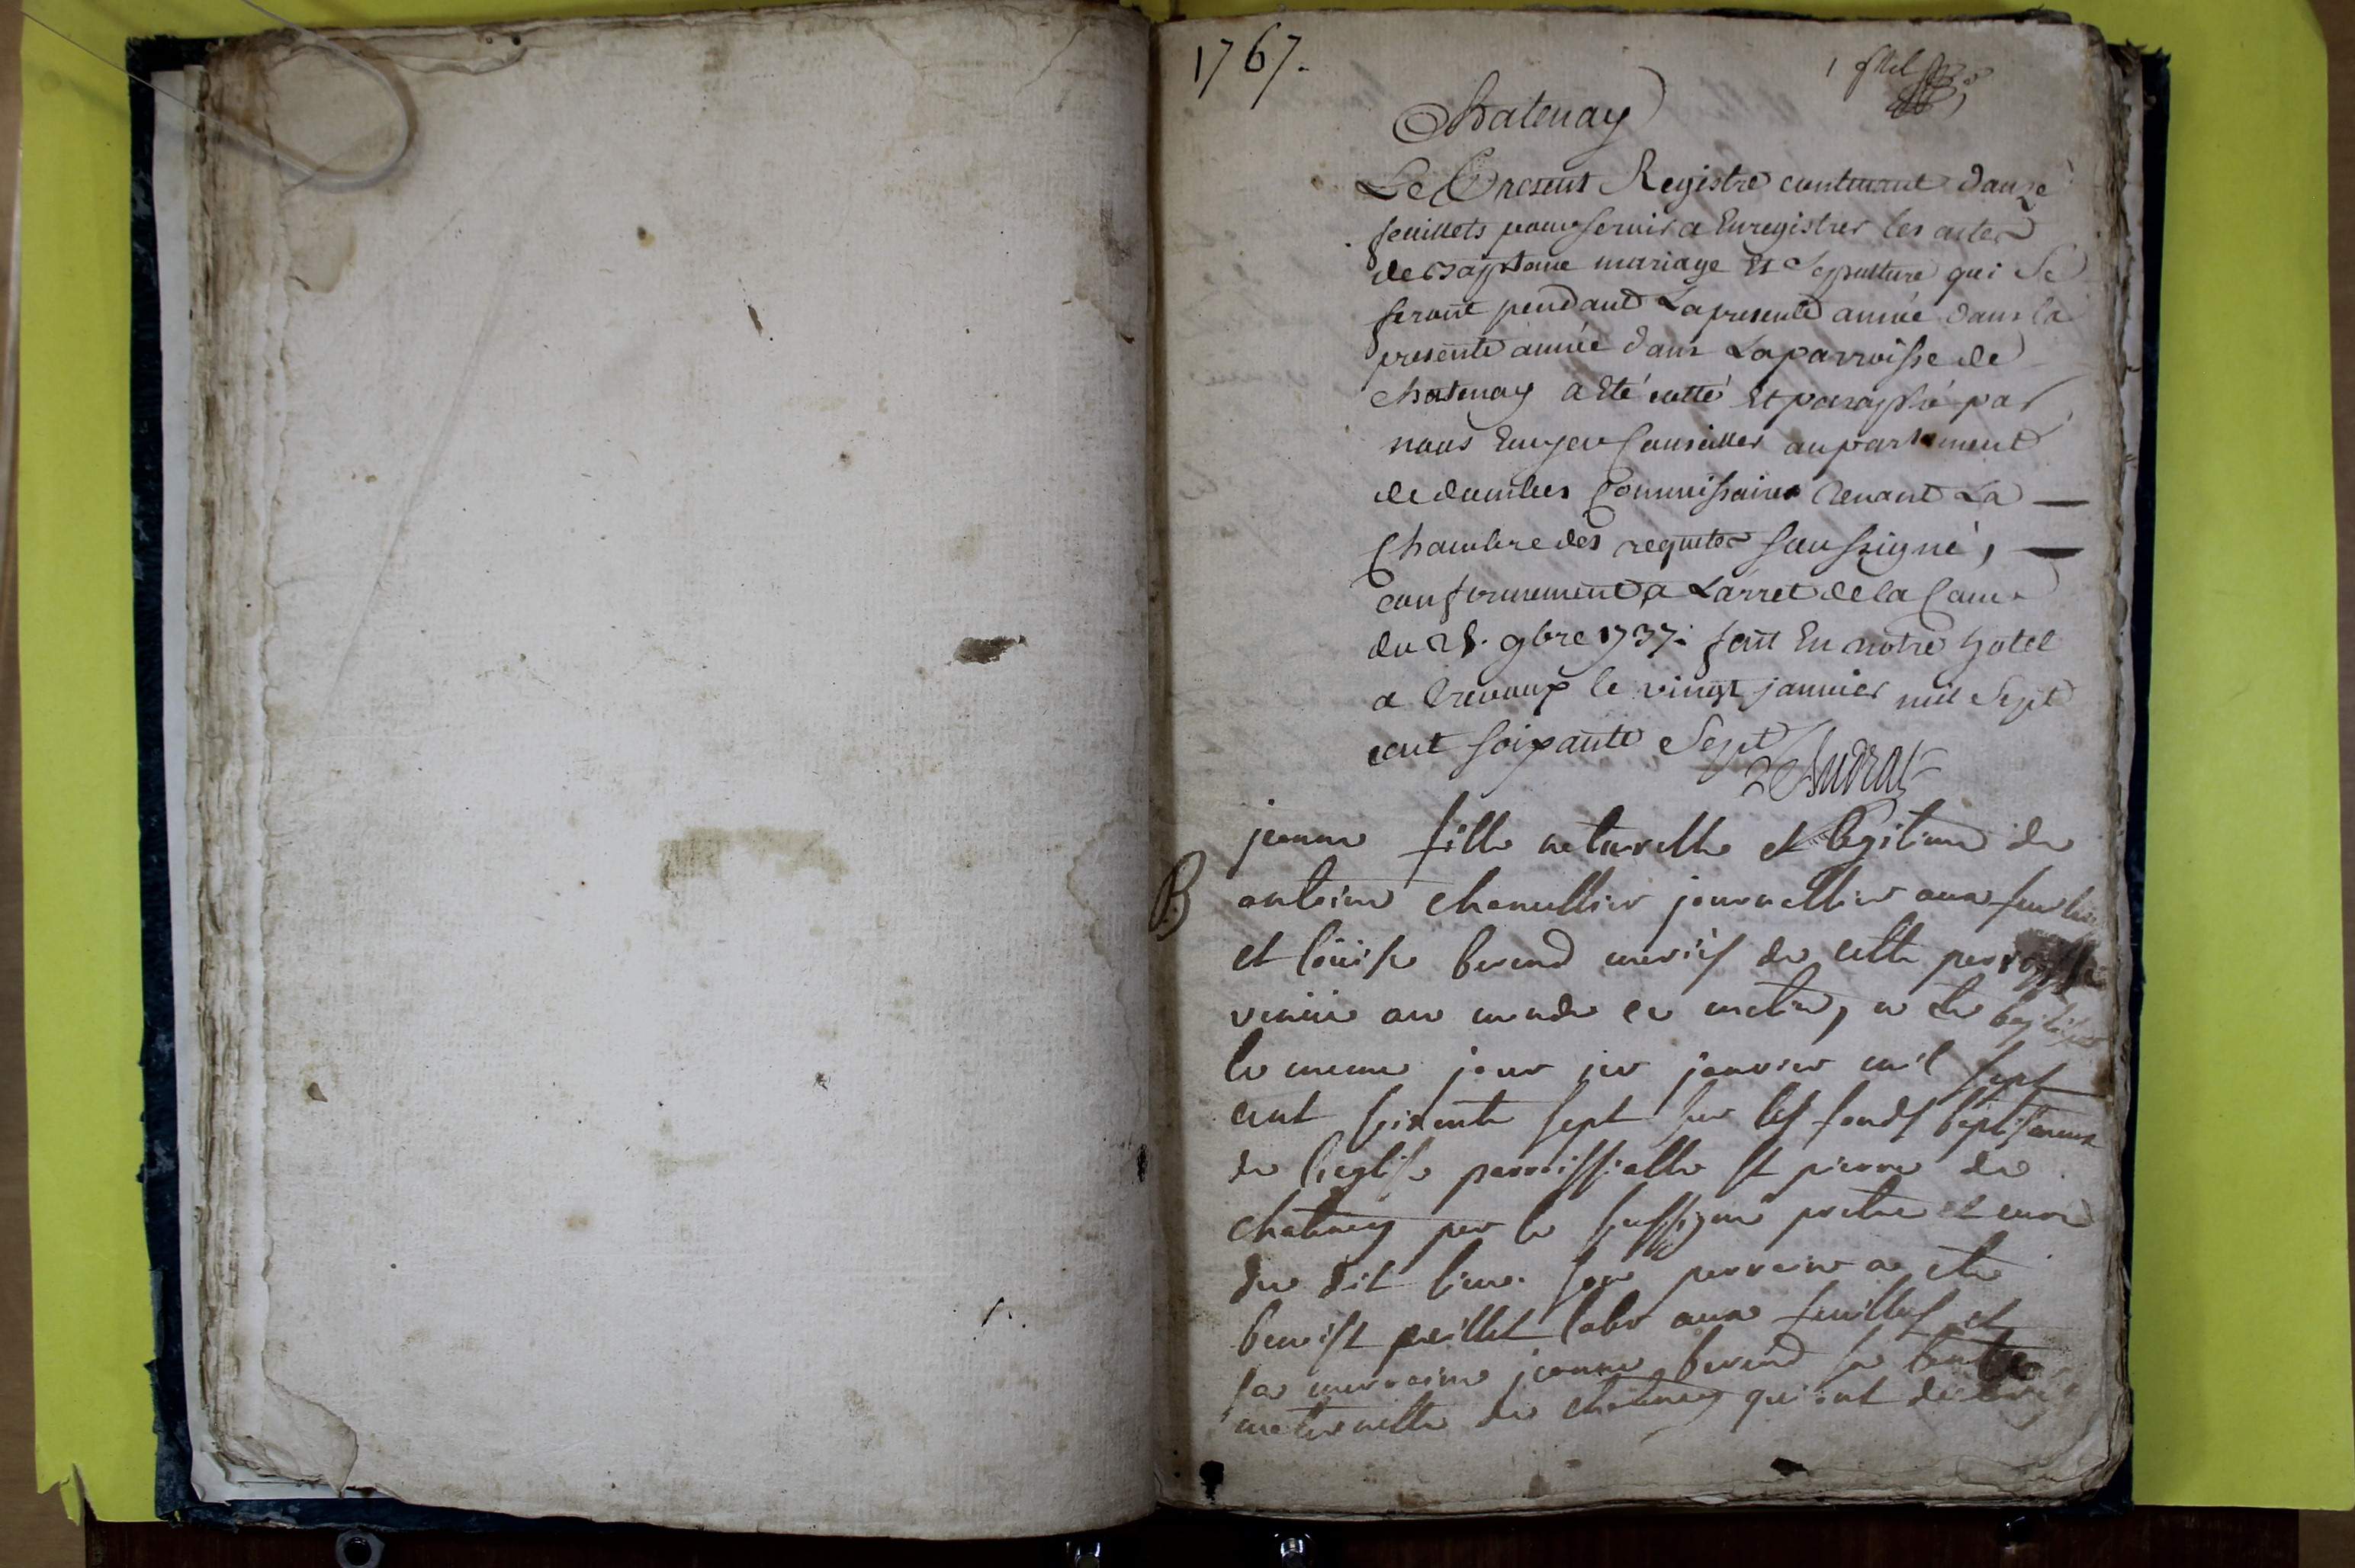 1767.
Chatenay
Le Present Registre contenant douze
feuillets pour servir a Enregistrer les actes
de Baptême mariage Et Sepulture qui Se
feront pendant La presente année dans la
presente année dans La parroisse de
chatenay a Eté cotté Et paraphé par
nous Conseiller au parlement
de dombes Commissaire tenant La
Chambre des requetes soussigné,
conformement a L'arret de la Cour
du 28. 9bre 1737. fait En notre hotel
a trevoux le vingt janvier mil Sept
cent soixante Sept
jeanne fille naturelle et legitime de
B antoine journallier aux
et loüise berend mariés de cette parroisse
venüe au monde ce matin, a ete baptisée
le meme jour janvier mil sept
cent soixante sept sur les fonds baptismaux
de l'eglise parroissialle st pierre de
chatenay par le sussigné pretre et curé
du dit lieu. son parrain a ete
benoist peillet labr aux feuilles et
sa marraine jeanne berend sa tante
maternelle de chatenay qui ont